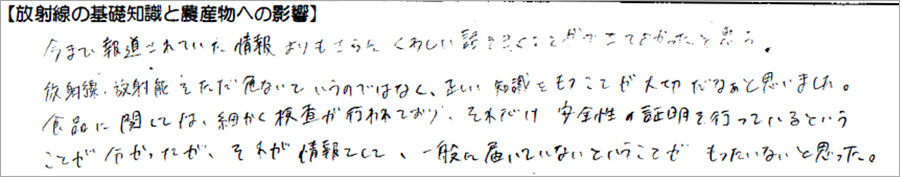 【放射線の基礎知識と農産物への影響】
今まで報道されていた情報よりもさらに くわしい話をきくことができてよかったと思う。
放射線・放射能をただ危ないというのではなく、正しい知識をもつことが大切だなぁと思いました。
食品に関しては、細かく検査が行われており、それだけ安全性の証明を行っているという
ことが分かったが、それが情報として、一般に届いていないということが もったいないと思った。